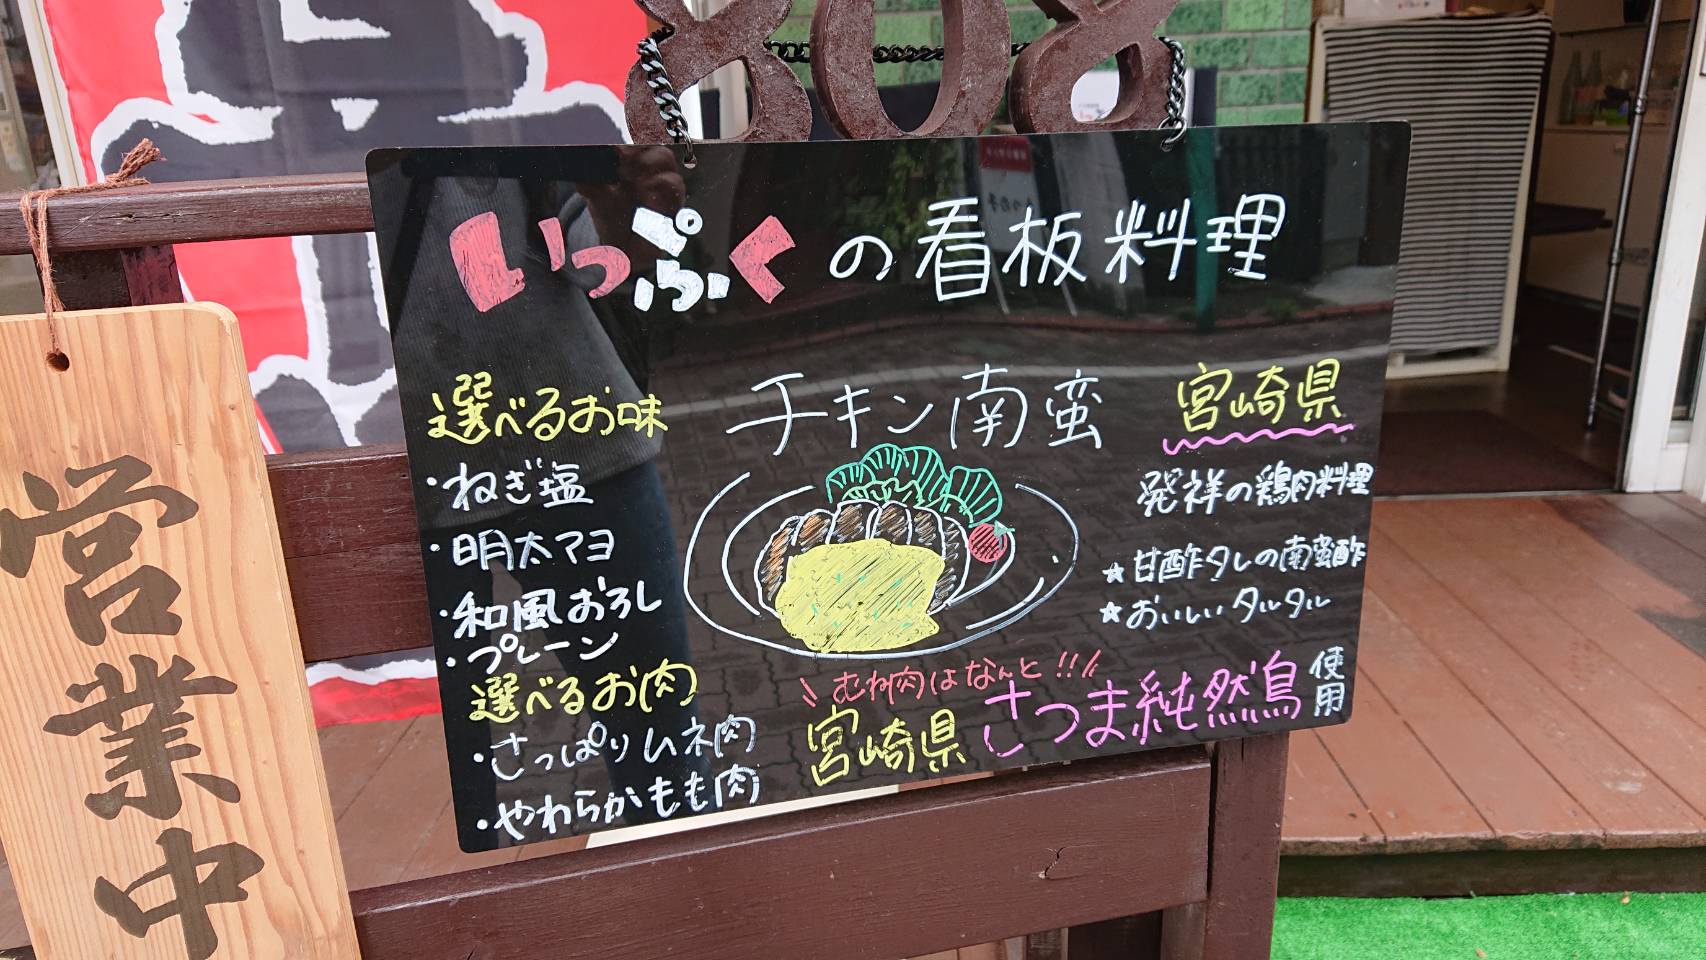 808
いっぷくの看板料理
選べるお味
・ねぎ塩
・明太マヨ
・和風おろし
・プレーン
選べるお肉
・さっぱりムネ肉
・やわらかもも肉
チキン南蛮
宮崎県
発祥の鶏肉料理
★甘酢タレの南蛮酢
★おいしいタルタル
使用
\\むね肉はなんと!!//
宮崎県さつま純然鳥
営業中